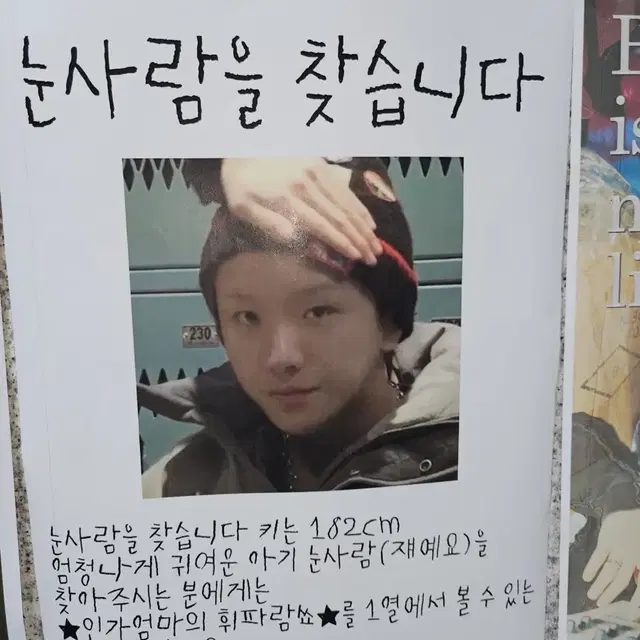 눈사람을 찾습니다
230
눈사람을 찾습니다 키는 182cm
엄청나게 귀여운 아기 눈사람(쟤예요)을
찾아주시는 분에게는
★인가엄마의 휘파람쑈★를 1열에서 볼 수 있는